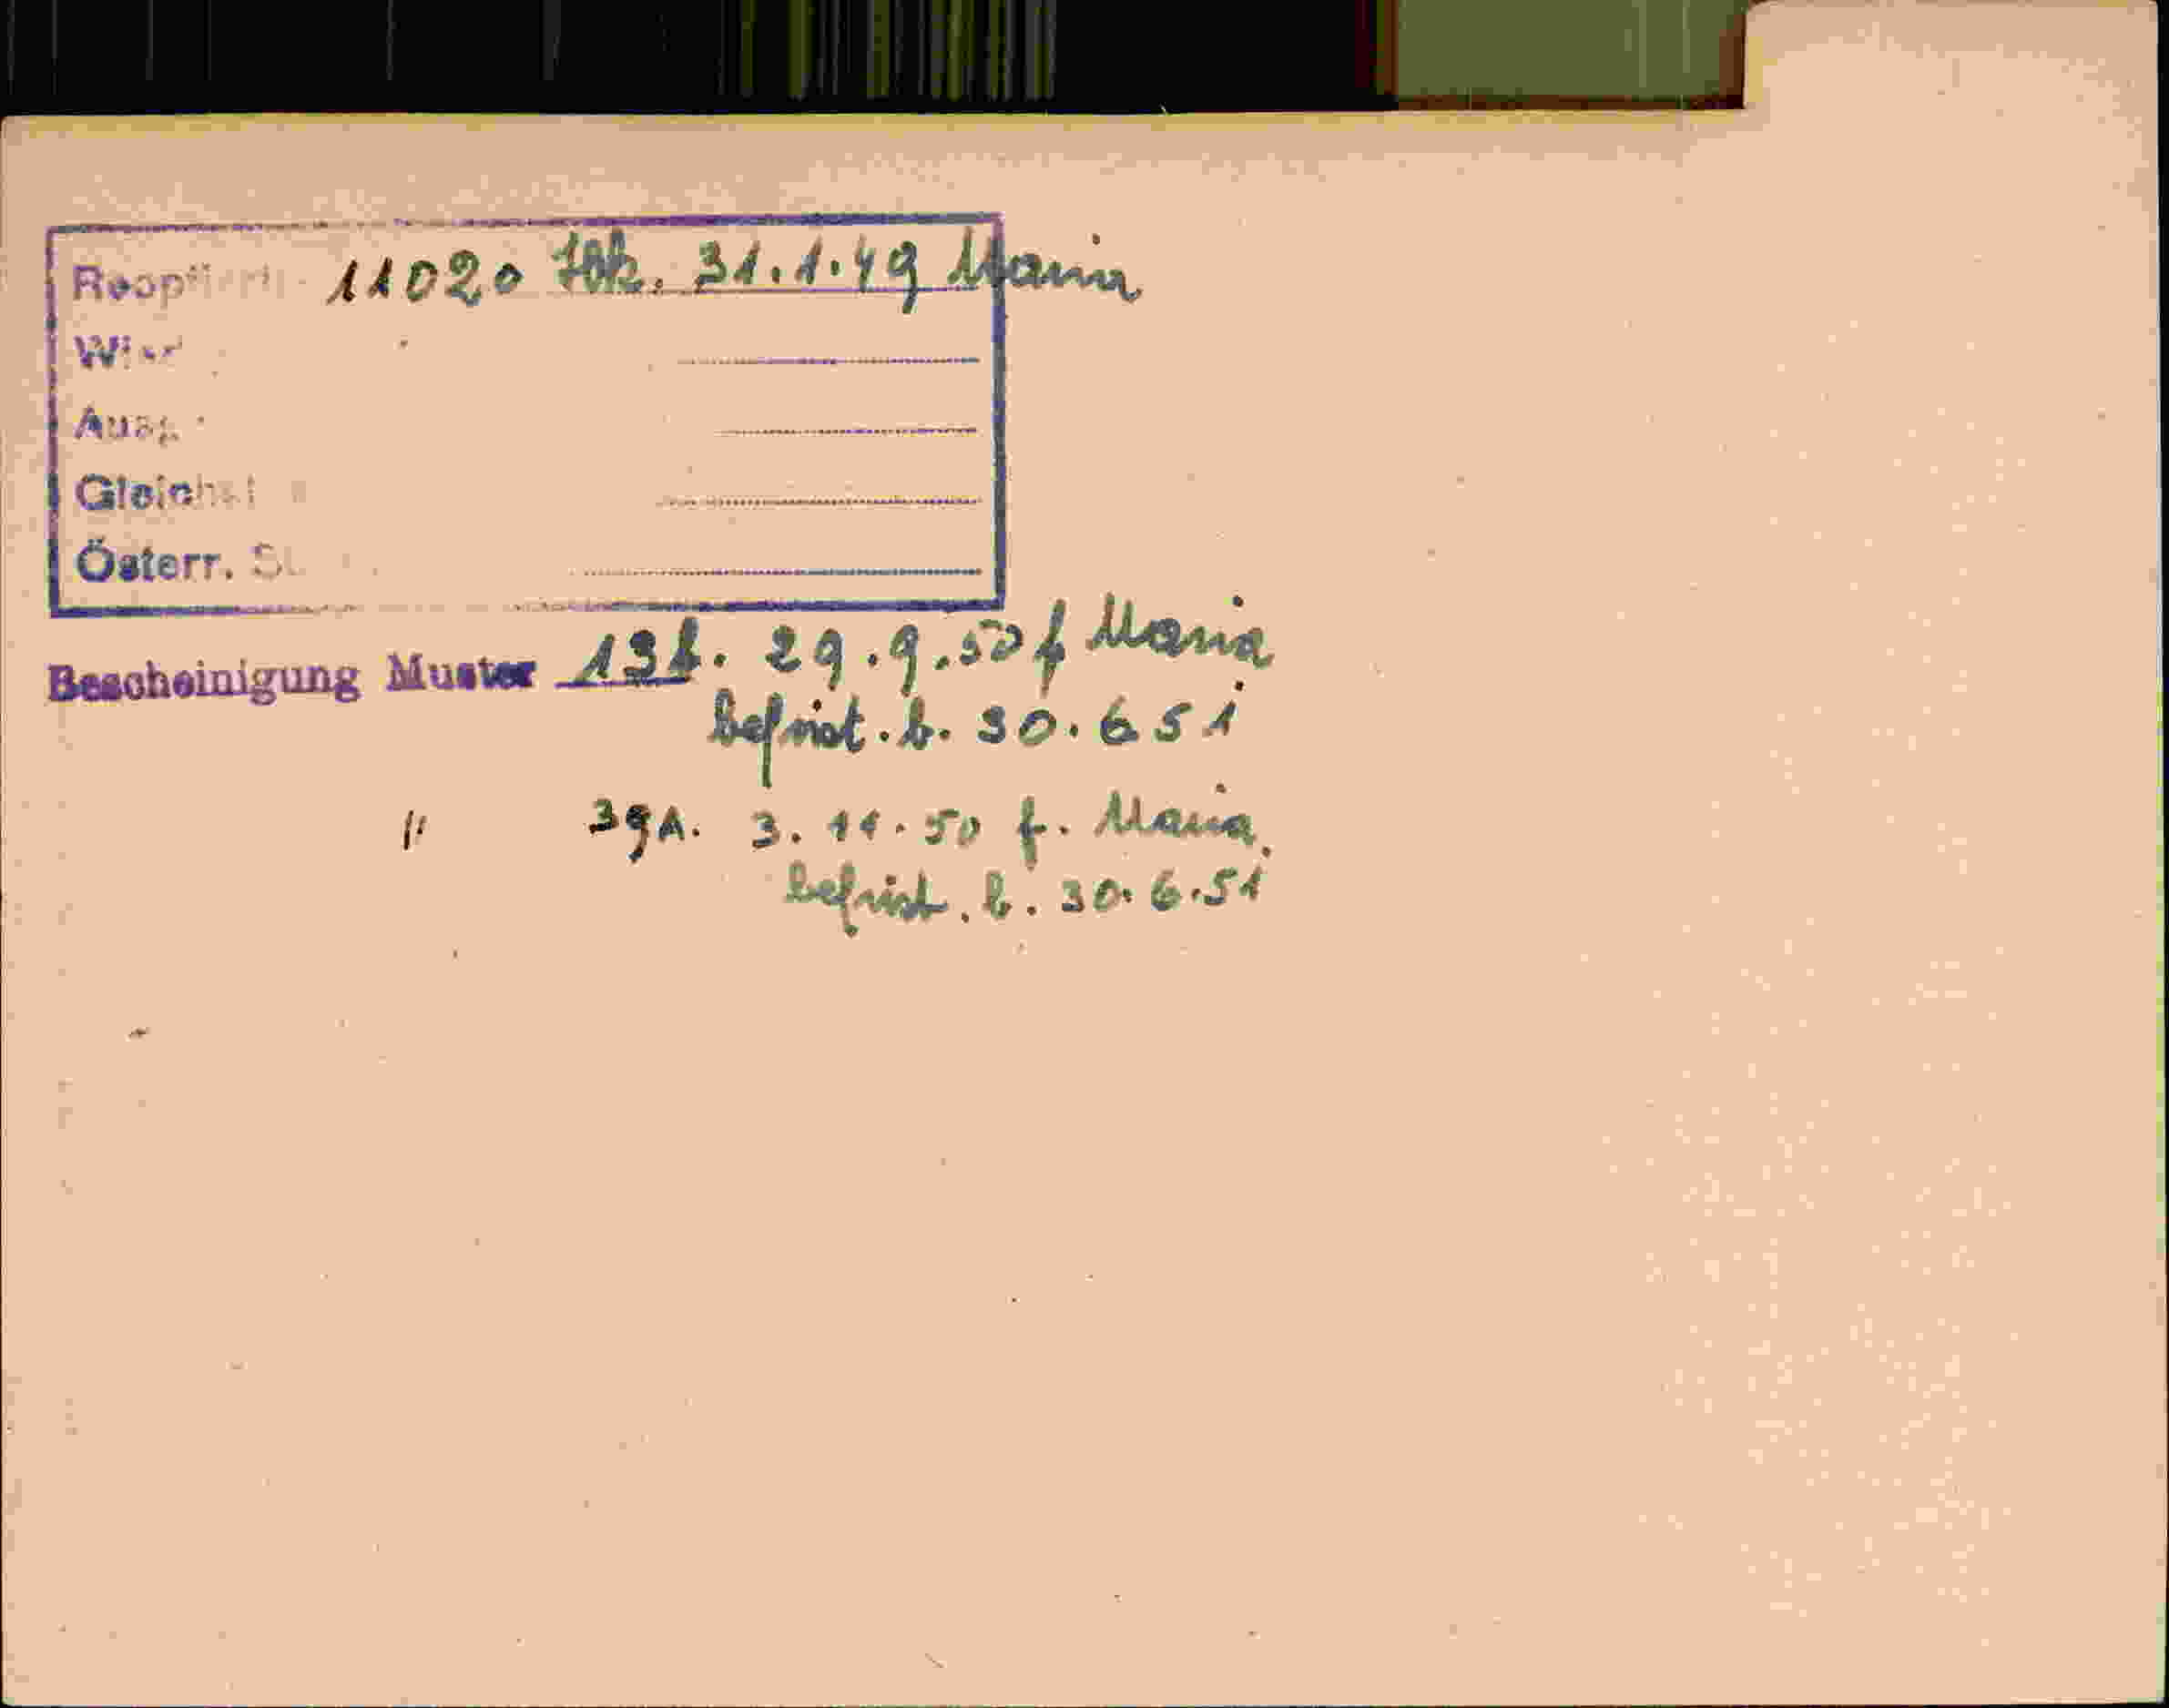 11020 Idk. 31.1.49 Maria
Österr.
Bescheinigung Muster 13b. 29.9.50 f Maria
befrist. b. 30.6 51
" 39A. 3.11.50 f. Maria
befrist. b. 30.6.51